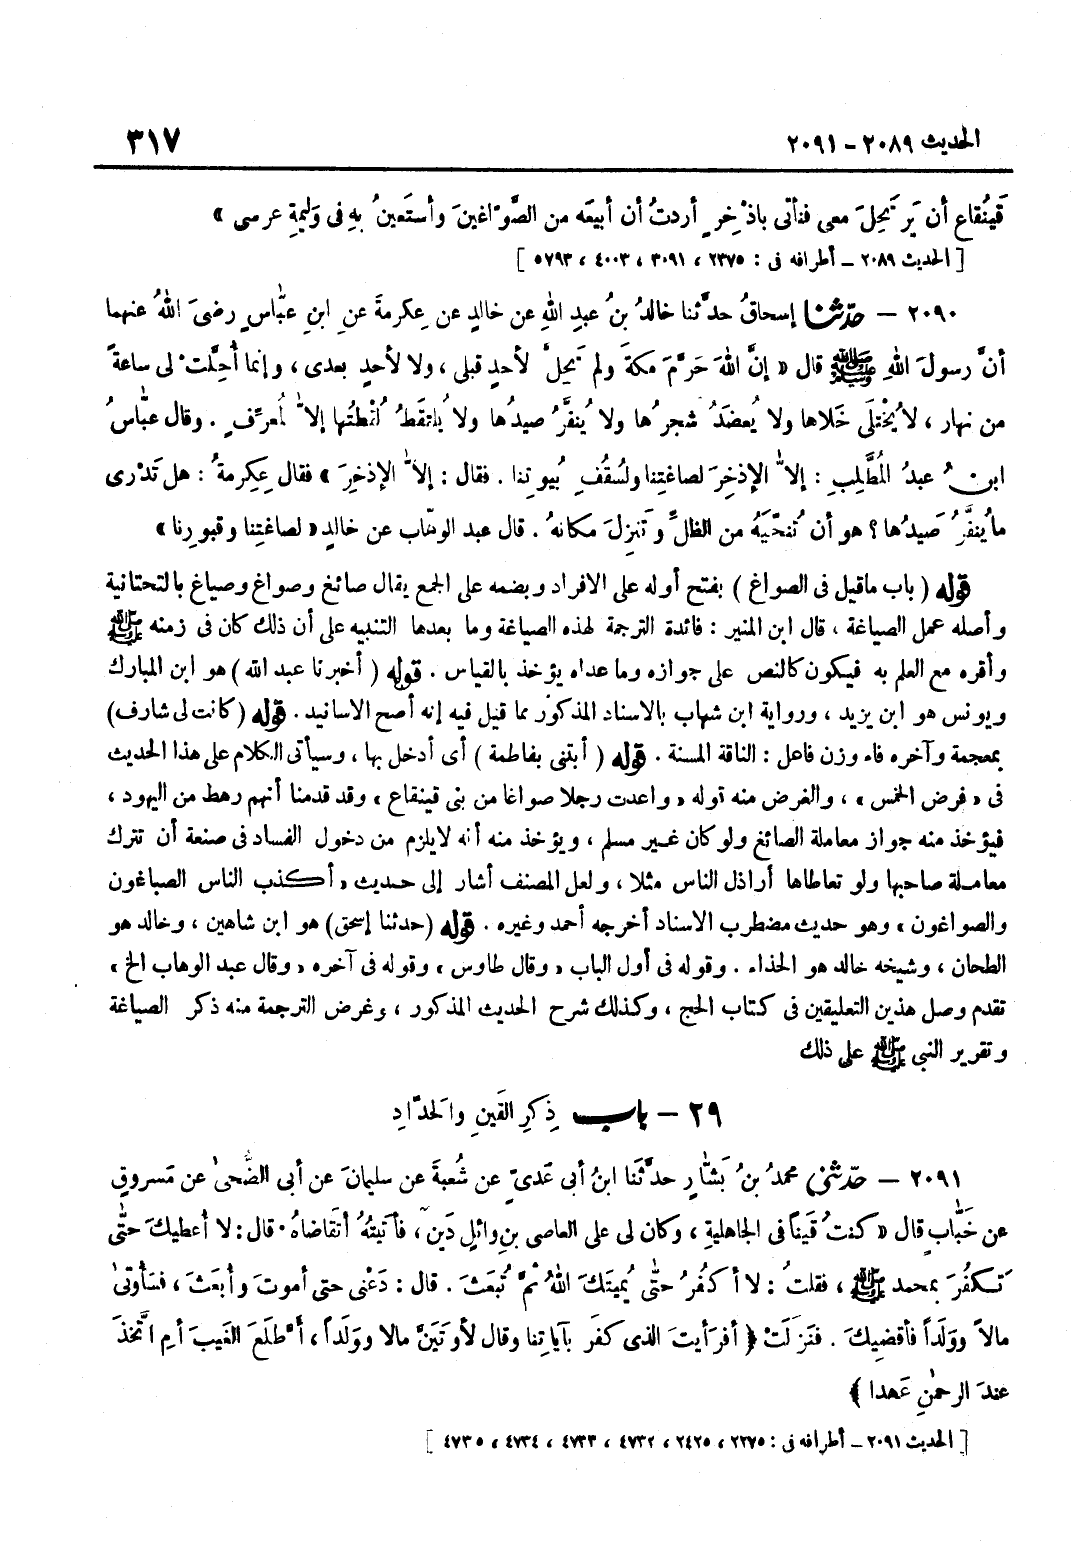 الحديث ٢٠٨٩ - ٢٠٩١ ٣١٧
قَينُقاع أن يَرتَحِلَ معى فنأتى باذْخِرٍ أردتُ أن أبيعَه من الصَّوّاغينَ وأستَعينُ بهِ فى وَليمةِ عرسى »
[ الحديث ٢٠٨٩ ــ أطرافه فى : ٢٣٧٥ ، ٣٠٩١ ، ٤٠٠٣ ، ٥٧٩٣ ]
٢٠٩٠ — حدّثنا إسحاقُ حدَّثنا خالدُ بنُ عبدِ اللهِ عن خالدٍ عن عِكرمةَ عنِ ابنِ عبّاسٍ رضىَ اللهُ عنهما
أنَّ رسولَ اللهِ ﷺ قال « إنَّ اللهَ حَرَّمَ مكةَ ولم تَحِلَّ لأحدٍ قبلى ، ولا لأحدٍ بعدى ، وإنما أُحِلَّتْ لى ساعةً
من نهار ، لا يُخْتلَى خَلاها ولا يُعضَدُ شجرُها ولا يُنفَّرُ صيدُها ولا يُلتقَطُ لُقطتُها إلاّ لمُعرِّفٍ . وقال عبّاسُ
ابنُ عبدُ المُطَّلِبِ : إلاّ الإذخِرَ لصاغتِنا ولسُقُفِ بُيوتِنا . فقال : إلاّ الإذخِرَ » فقال عِكرِمةُ : هل تَدْرى
ما يُنفَّرُ صَيدُها ؟ هو أن تُنَحّيَهُ من الظلِّ وتَنزِلَ مكانهُ . قال عبد الوهّاب عن خالدٍ « لصاغتِنا وقبورِنا »
قوله ( باب ماقيل فى الصواغ ) بفتح أوله على الافراد وبضمه على الجمع يقال صائغ وصواغ وصياغ بالتحتانية
وأصله عمل الصياغة ، قال ابن المنير : فائدة الترجمة لهذه الصياغة وما بعدها التنبيه على أن ذلك كان فى زمنه ﷺ
وأقره مع العلم به فيكون كالنص على جوازه وما عداه يؤخذ بالقياس . قوله ( أخبرنا عبد الله ) هو ابن المبارك
ويونس هو ابن يزيد ، ورواية ابن شهاب بالاسناد المذكور مما قيل فيه إنه أصح الاسانيد . قوله ( كانت لى شارف )
بمعجمة وآخره فاء وزن فاعل : الناقة المسنة . قوله ( أبتنى بفاطمة ) أى أدخل بها ، وسيأتى الكلام على هذا الحديث
فى « فرض الخمس » ، والغرض منه قوله « واعدت رجلا صواغا من بنى قينقاع » وقد قدمنا أنهم رهط من اليهود ،
فيؤخذ منه جواز معاملة الصائغ ولو كان غير مسلم ، ويؤخذ منه أنه لا يلزم من دخول الفساد فى صنعة أن تترك
معاملة صاحبها ولو تعاطاها أراذل الناس مثلا ، ولعل المصنف أشار إلى حديث « أكذب الناس الصباغون
والصواغون » وهو حديث مضطرب الاسناد أخرجه أحمد وغيره . قوله ( حدثنا إسحق ) هو ابن شاهين ، وخالد هو
الطحان ، وشيخه خالد هو الحذاء . وقوله فى أول الباب « وقال طاوس » وقوله فى آخره « وقال عبد الوهاب الخ »
تقدم وصل هذين التعليقين فى كتاب الحج ، وكذلك شرح الحديث المذكور ، وغرض الترجمة منه ذكر الصياغة
وتقرير النبى ﷺ على ذلك
٢٩ — باب ذِكرِ القَينِ والحَدّادِ
٢٠٩١ — حدّثنى محمدُ بنُ بَشّارٍ حدَّثَنا ابنُ أبى عَدىّ عن شُعبةَ عن سليمانَ عن أبى الضُّحىٰ عن مَسروقٍ
عن خَبّابٍ قال « كنتُ قَيناً فى الجاهليةِ ، وكان لى على العاصى بنِ وائلٍ دَينٌ ، فأتيتُهُ أتقاضاهُ . قال : لا أعطيكَ حتّى
تَكفُرَ بمحمد ﷺ ، فقلتُ : لا أكفُرُ حتّى يُميتَكَ اللهُ ثمَّ تُبعَثَ . قال : دَعْنى حتى أموتَ وأبعَثَ ، فسأُوتىٰ
مالاً ووَلَداً فأقضِيكَ . فنَزَلَتْ ﴿ أفرَأيتَ الذى كفَرَ بآياتِنا وقال لأُوتَيَنَّ مالا ووَلَداً ، أطَّلعَ الغَيبَ أمِ اتَّخذَ
عندَ الرحمٰنِ عَهدا ﴾
[ الحديث ٢٠٩١ ــ أطرافه فى : ٢٢٧٥ ، ٢٤٢٥ ، ٤٧٣٢ ، ٤٧٣٣ ، ٤٧٣٤ ، ٤٧٣٥ ]